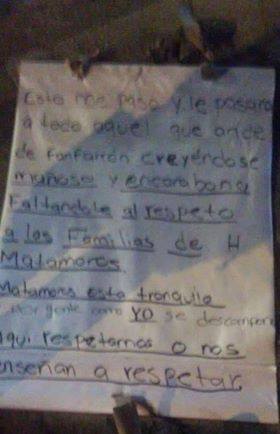 Esto me paso y le pasara
a todo aquel que ande
de Fonfarron creyendose
muñoso y encorabona
Faltandole al respeto
a las Familias de H
Matamoros
Matamoros esta tranquilo
por gente como YO se descompone
Aqui respetamos o nos
enseñan a respetar